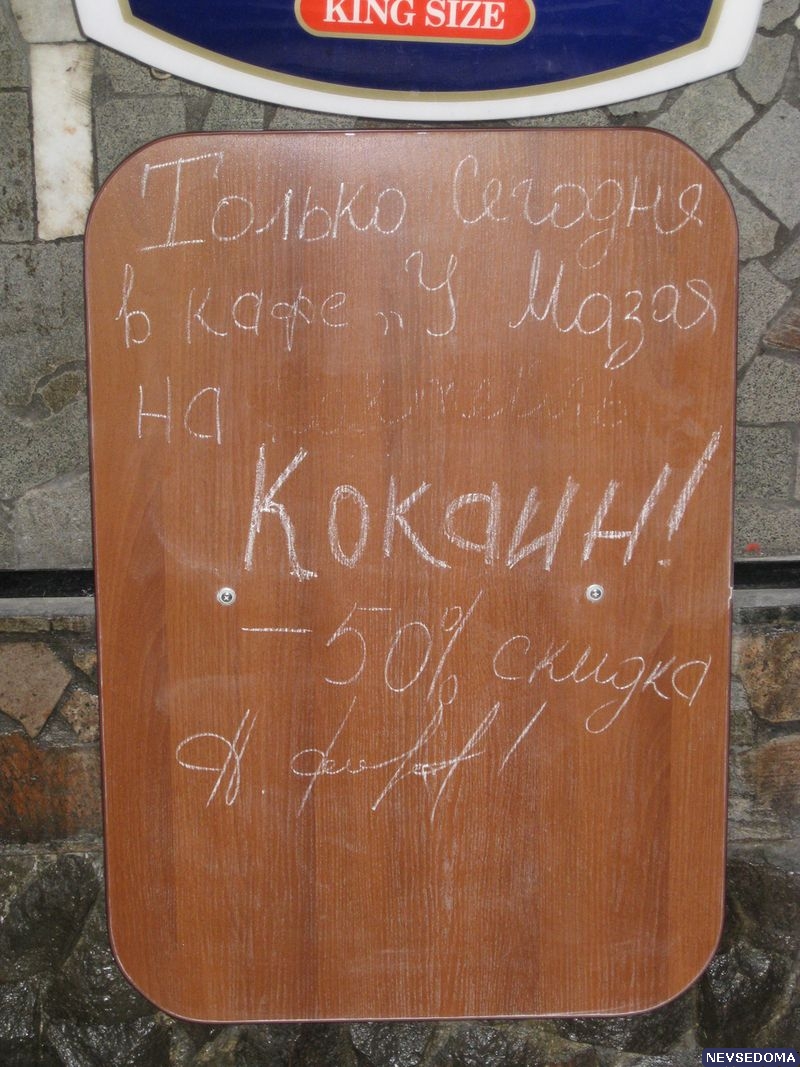 KING SIZE
Только Сегодня
в кафе „У Мазая
на
Кокаин!
–50% скидка
NEVSEDOMA